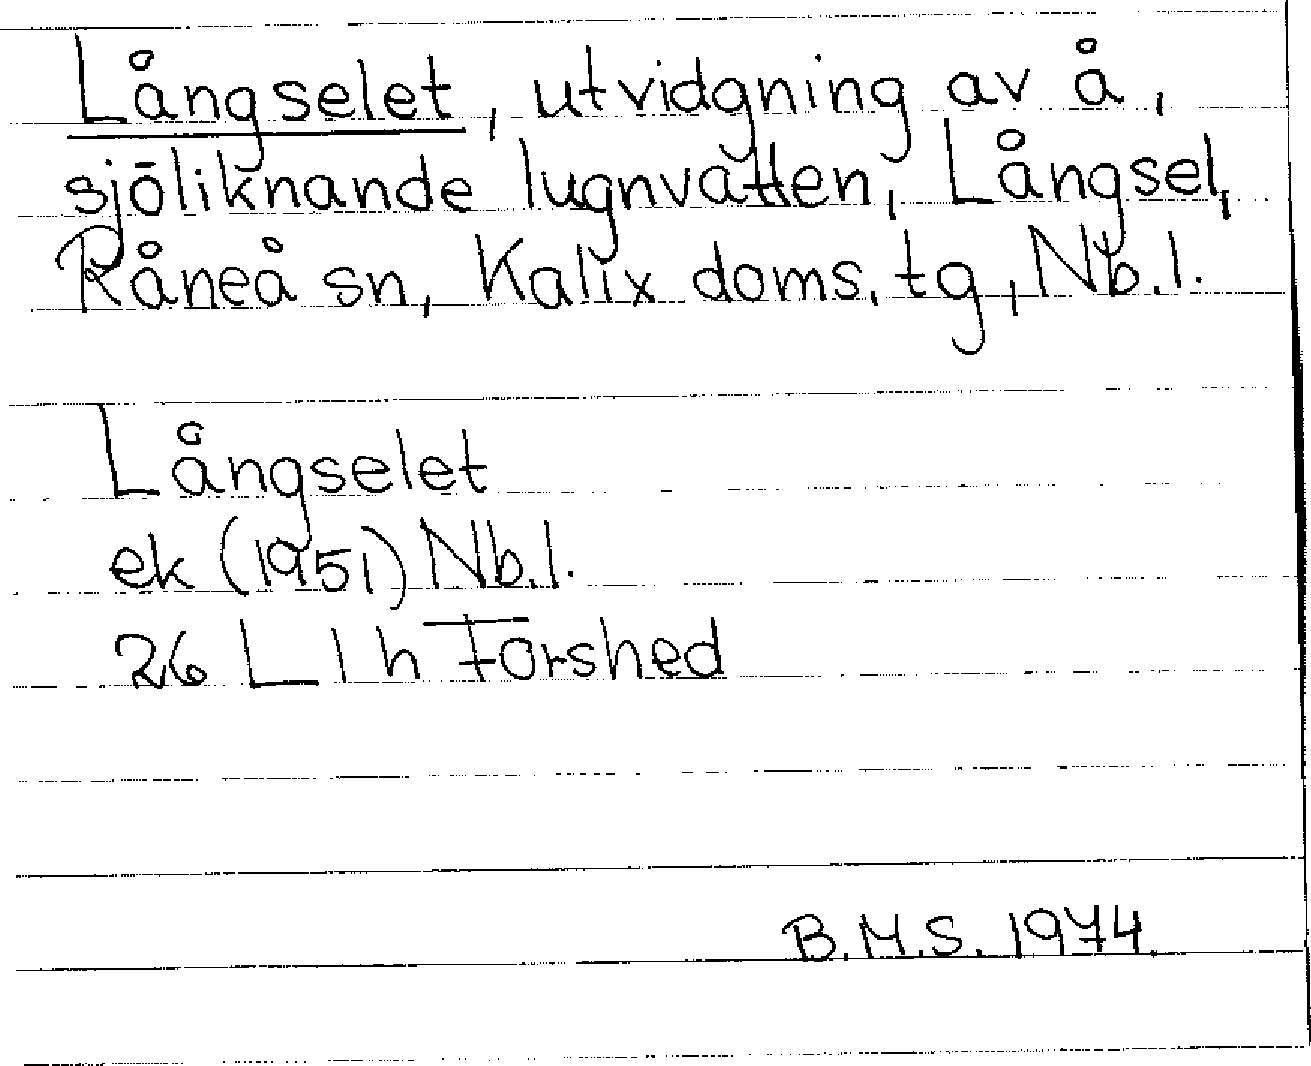 Långselet, utvidgning av å,
sjöliknande lugnvatten, Långsel,
Råneå sn, Kalix doms. tg, Nb.l.
Långselet
ek (1951) Nb.l.
26 L 1 h Forshed
B.M.S. 1974.